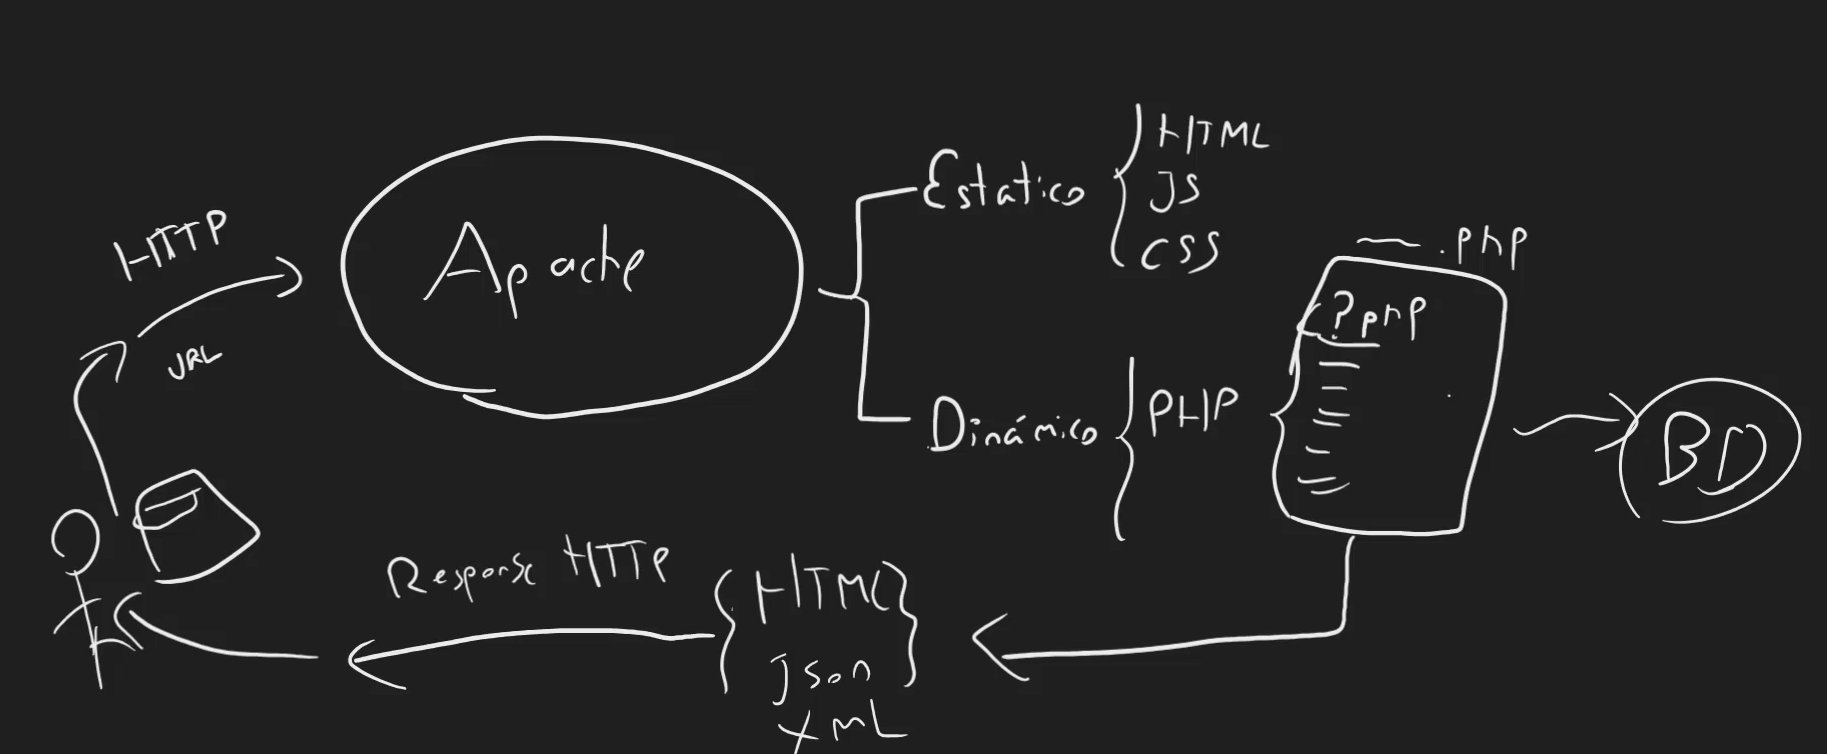 HTTP
URL
Apache
Estatico
HTML
JS
CSS
Dinámico
PHP
.php
<?php
BD
Response HTTP
HTML
json
XML